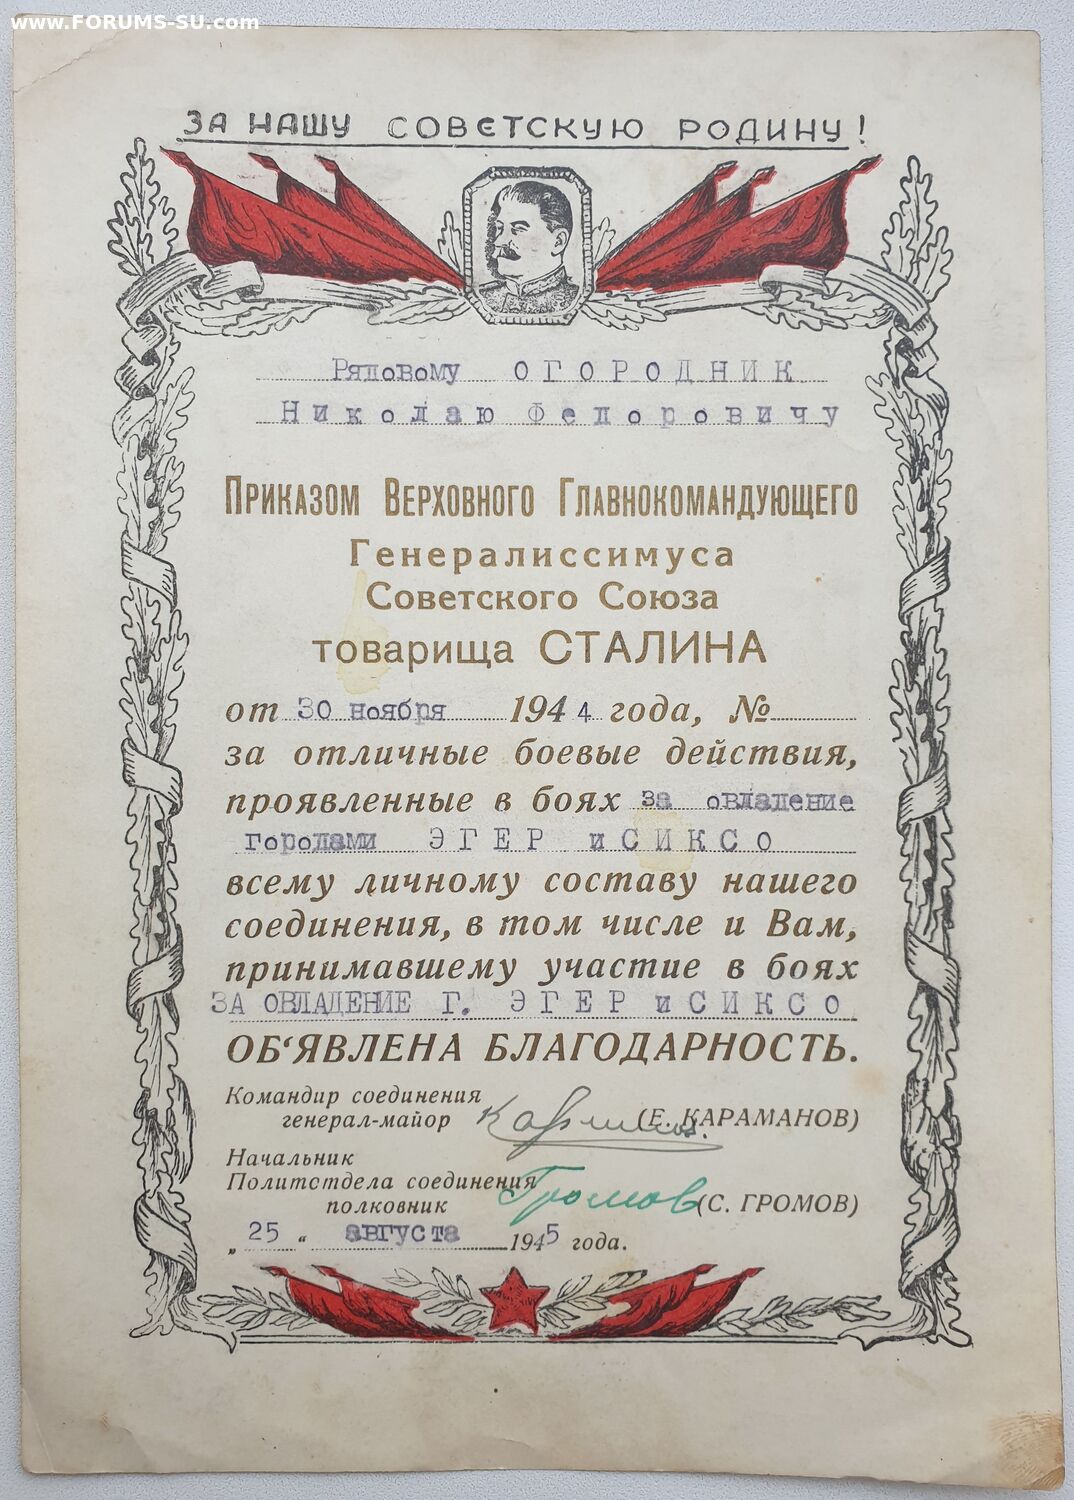 www.FORUMS-SU.com
ЗА НАШУ СОВЕТСКУЮ РОДИНУ!
Рядовому ОГОРОДНИК
Николаю Федоровичу
ПРИКАЗОМ ВЕРХОВНОГО ГЛАВНОКОМАНДУЮЩЕГО
Генералиссимуса
Советского Союза
товарища СТАЛИНА
от 30 ноября 1944 года, №
за отличные боевые действия,
проявленные в боях за овладение
городами ЭГЕР иСИКСО
всему личному составу нашего
соединения, в том числе и Вам,
принимавшему участие в боях
ЗА ОВЛАДЕНИЕ Г. ЭГЕР иСИКСО
ОБ‘ЯВЛЕНА БЛАГОДАРНОСТЬ.
Командир соединения
генерал-майор Караманов. (Е. КАРАМАНОВ)
Начальник
Политотдела соединения
полковник Громов (С. ГРОМОВ)
„ 25 “ августа 1945 года.